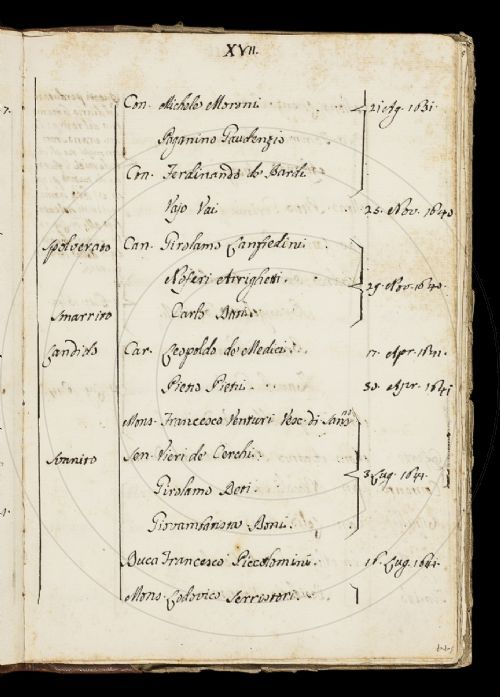 XVII.
7.
Con. Michele Moroni 21 Ag. 1631.
Paganino Gaudenzio
Con. Ferdinando de Bardi
Vajo Vai 25. Nov. 1640
Spolverato Can. Girolamo Lanfredini.
Noferi Arrighetti. 29. Nov. 1640.
Smarrito Carlo
Candido Car. Leopoldo de Medici. 17. Apr. 1641.
Pietro Pieri. 30. Apr. 1641
Mons. Francesco Venturi Vesc. di
Svanito Sen. Vieri de Cerchi.
Girolamo Deti. 3 Lug. 1641.
Giovambatista Doni.
Francesco Piccolomini. 16. Lug. 1641.
Mons. Lodovico Serristori.